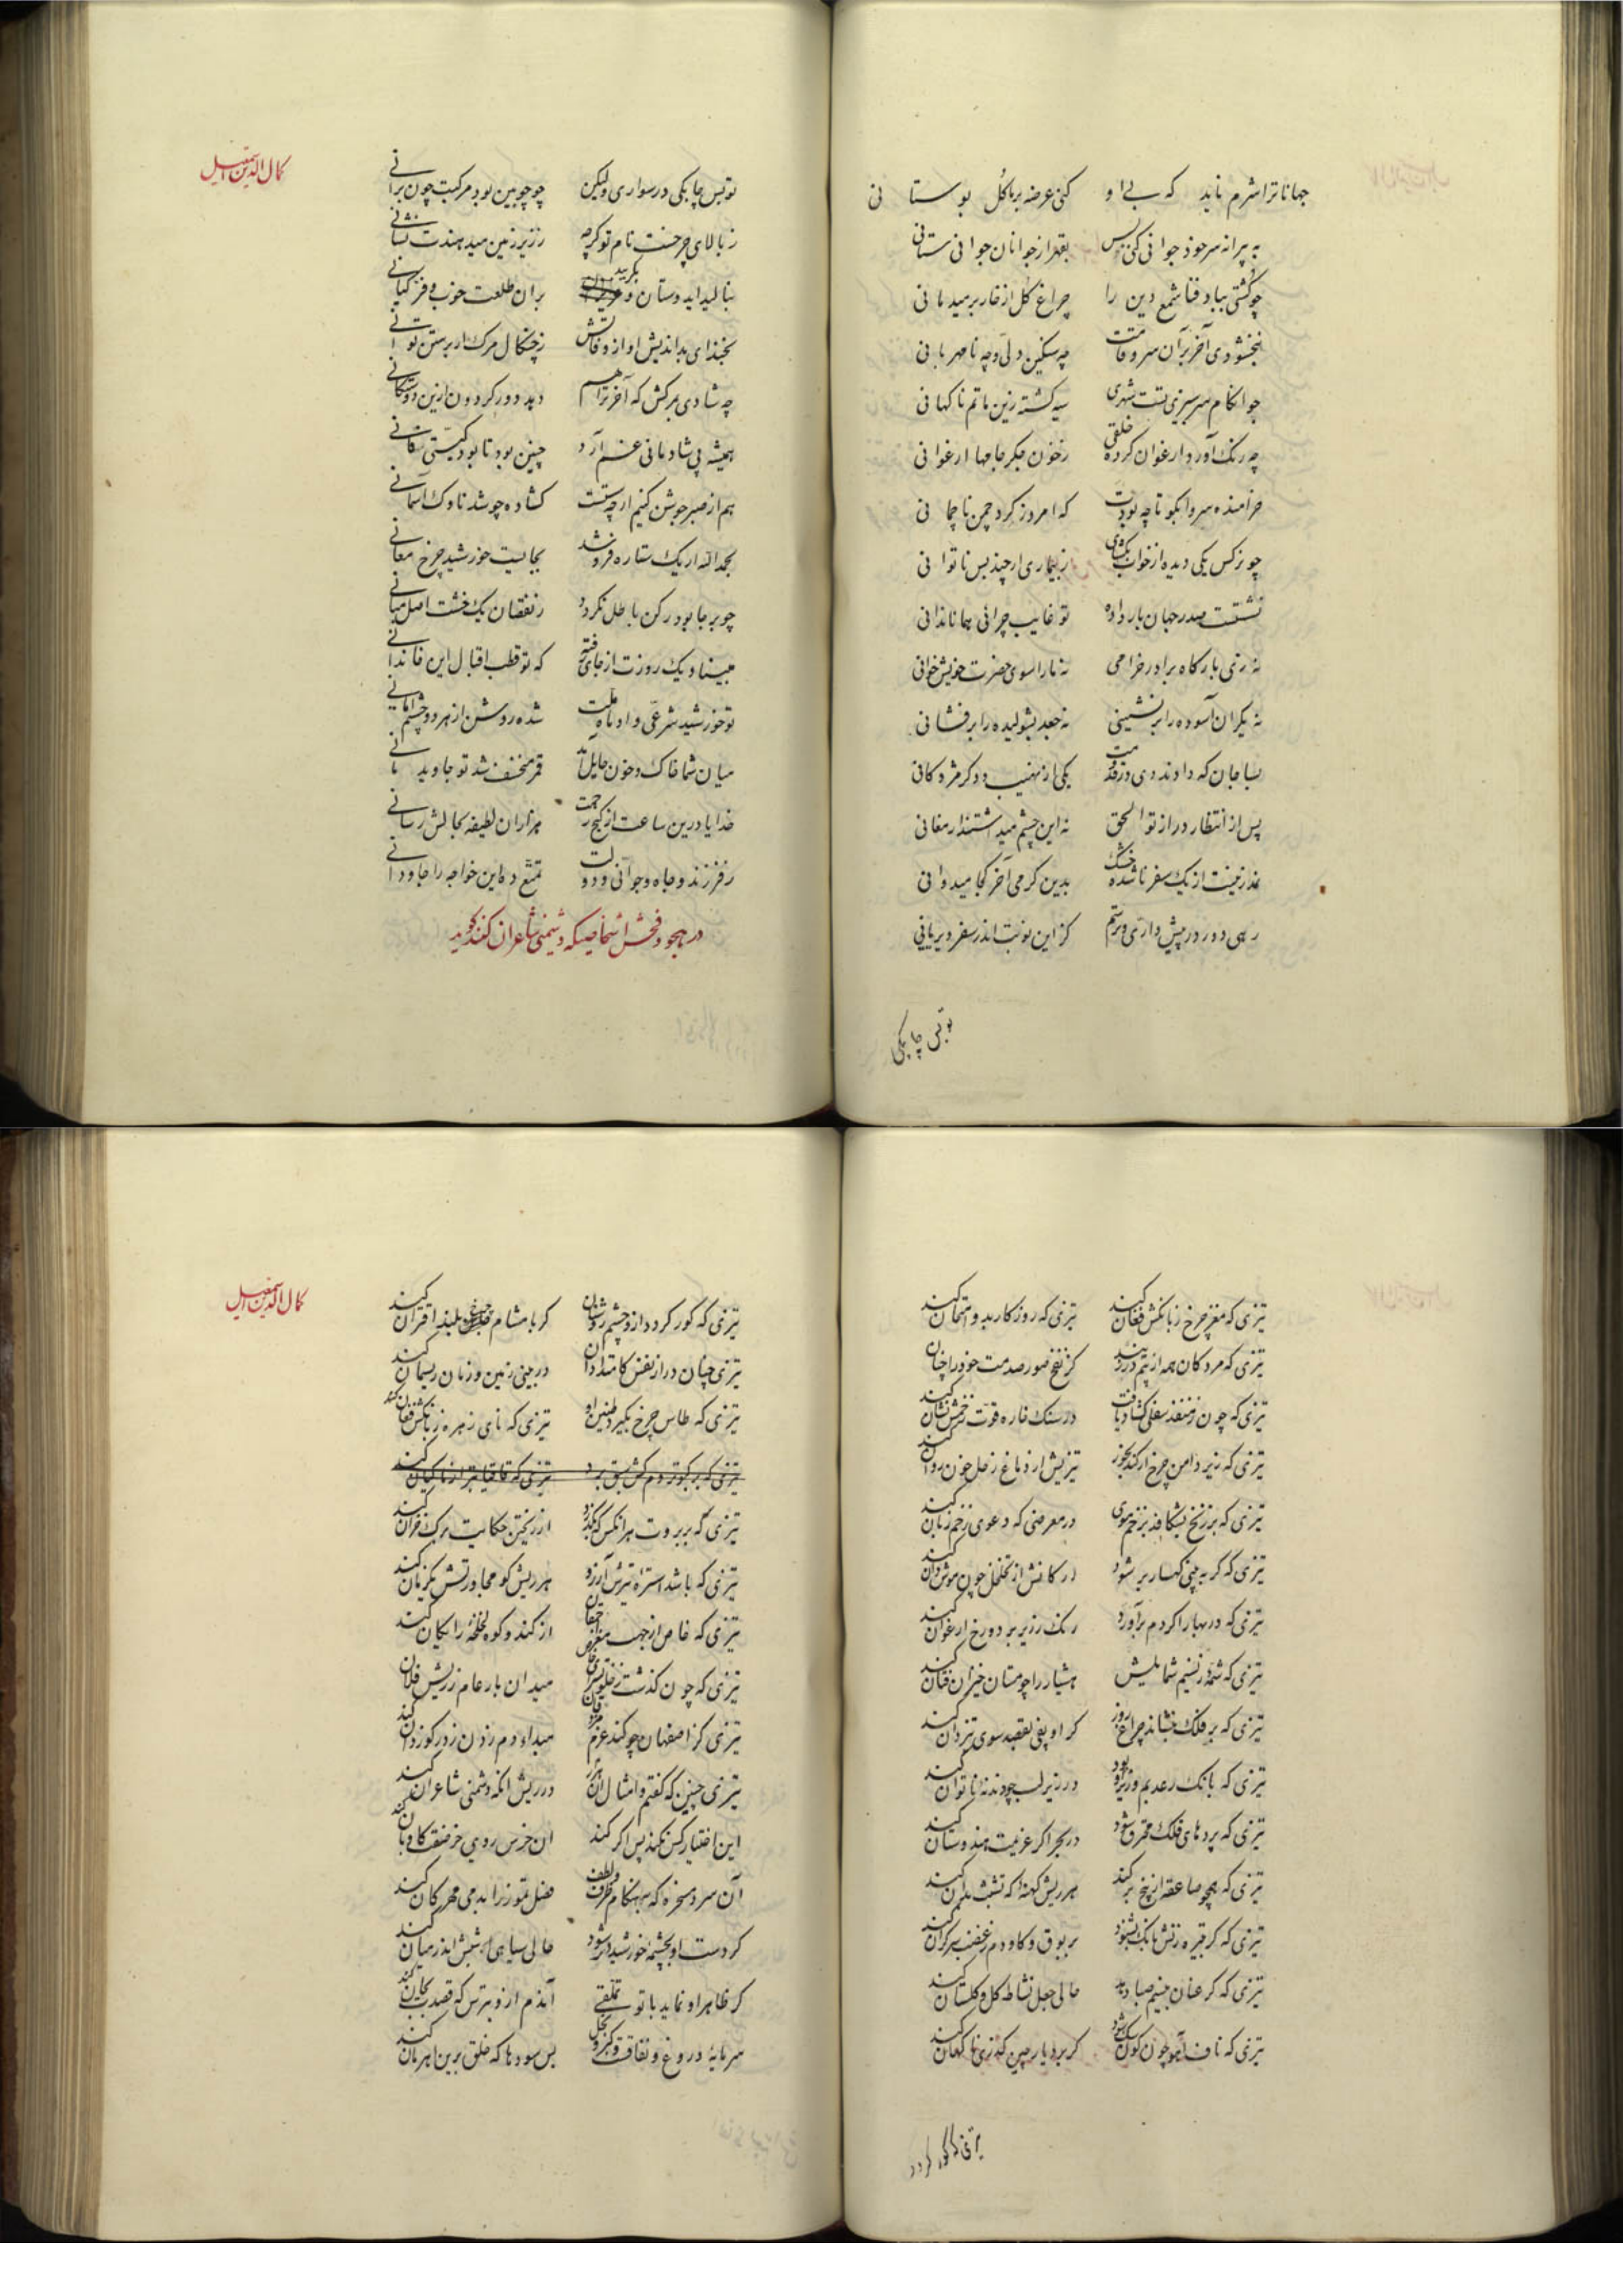 جهانا ترا شرم ناید که بی او کنی عرضه بر ما گل بوستانی
به پیرانه سر خود جوانی کنی پس بقهر از جوانان جوانی ستانی
چو کشتی بباد فنا شمع دین را چراغ گل از خار بر میدمانی
نبخشودی آخر بر آن سرو قامت چه سنگین دلی و چه نامهربانی
سیه گشته زین ماتم ناگهانی
چه رنگ آورد ارغوان کرده خلقی ز خون جگر جامها ارغوانی
خرامنده سروا بگو تا چه بودت که امروز گرد چمن ناچمانی
چو نرگس یکی دیده از خواب بگشای ز بیماری ار چند بس ناتوانی
نشستست صدر جهان بار داده تو غایب چرائی همانا ندانی
نه زی بارگاه برادر خرامی نه ما را سوی حضرت خویش خوانی
نه یکران آسوده را برنشینی نه جعد بشولیده را برفشانی
بسا جان که دادند دی در قدومت یکی از نهیب و دگر مژدگانی
پس از انتظار دراز تو الحق نه این چشم میداشتند ارمغانی
از یک سفر ناشده خشک بدین گرمی آخر کجا میدوانی
رهی دور در پیش داری و ترسم کز این نوبت اندر سفر دیر مانی
تو بس چابکی
کمال الدین اسمعیل
تو بس چابکی در سواری ولیکن چو چوبین بود مرکبت چون برانی
ز بالای چرخست نام تو گرچه ز زیر زمین میدهندت نشانی
بنالید ای دوستان و بگریید بر آن طلعت خوب و فر کیانی
بخند ای بداندیش او از وفاتش ز چنگال مرگ ار برستن توانی
چه شادی بمرگش که آخر ترا هم
همیشه پی شادمانی غم آرد چنین بود تا بود گیتی
هم از صبر جوشن کنیم ار چه سستست گشاده چو شد ناوک آسمانی
بحمد الله ار یک ستاره فرو شد بجایست خورشید چرخ معانی
چو بر جا بود رکن باطل نگردد ز نقصان یک خشت اصل مبانی
مبیناد یک روزت از جای رفته که تو قطب اقبال این خاندانی
تو خورشید شرعی و او ماه ملت شده روشن از هر دو چشم امانی
میان شما خاک و خون حایل آمد قمر منخسف شد تو جاوید مانی
خدایا درین ساعت از گنج رحمت هزاران لطیفه بجانش رسانی
ز فرزند و جاه و جوانی و دولت تمتع ده این خواجه را جاودانی
در هجو و فحش اشخاصیکه دشمنی شاعران کنند گوید
تیزی که مغز چرخ ز بانگش فغان کند تیزی که روزگار بدو امتحان کند
تیزی که مردگان همه از بیم در زمیند کز نفخ صور صدمت خود را چنان کند
تیزی که چون ز منفذ سفلی گشاد یافت در سنگ خاره قوت زخمش نشان کند
تیزی که زیر دامن چرخ ار کند بخور تیزیش از دماغ زحل خون روان کند
در معرضی که دعوی زخم زبان کند
تیزی که گر به پیچ کهسار بر شود
تیزی که در بهار اگر دم برآورد رنگ زریر بر دو رخ ارغوان کند
تیزی که شمهٔ ز نسیم شمایلش هشیار را چو مستان خیزان فتان کند
تیزی که بر فلک بنشاند چراغ روز گر او بفی بقصد سوی تیزدان کند
تیزی که بانگ رعد بم و زیر او بود در زیر لب چو دندنه ناتوان کند
تیزی که پردهای فلک محترق شود در بحر اگر عزیمت هندوستان کند
تیزی که همچو صاعقه از بیخ بر کند هر ریش کهنه را که نشست بدان کند
بر بوق و گاودم ز غضب سر گران کند
تیزی که گر عنان بنسیم صبا دهد حالی جعل نشاط گل و گلستان کند
تیزی که ناف آهو چون کون سگ شود گر بر دیار چین گذری ناگهان کند
تیزی که کور گردد
کمال الدین اسمعیل
تیزی که کور گردد ازو چشم روشنان گر با مشام چرخ بلند اقتران کند
تیزی چنان دراز نفس کامتداد آن در بینی زمین و زمان ریسمان کند
تیزی که طاس چرخ بگیرد طنین او تیزی که نای زهره ز بانگش فغان کند
تیزی که بر بروت هر آنکس که بگذرد از ریختن حکایت برگ خزان کند
تیزی که باشد استره تیزش آرزو هر ریش کو مجاورتش یکزمان کند
تیزی که خاص از جهت مغز از گند و گوه لخلخه رایگان کند
تیزی که چون گذشت ز خلوتسرای خاص میدان بار عام ز ریش فلان کند
تیزی کز اصفهان چو کند عزم
تیزی چنین که گفتم و امثال آن هزار در ریش آنکه دشمنی شاعران کند
این اختیار کس نکند پس اگر کند آن خرس روی خر صفت گاوبان کند
آن سرد مسخره که بهنگام ظرف و لطف فضل تموز را بدمی مهرگان کند
گر دست او بچشمه خورشید بر شود حالی سیاهی شبش اندر میان کند
گر ظاهر او نماید با تو تملقی آندم ازو بترس که قصد بجان کند
سرمایه دروغ و نفاق و کبر و بخل بس سودها که خلق برین اهرمان کند